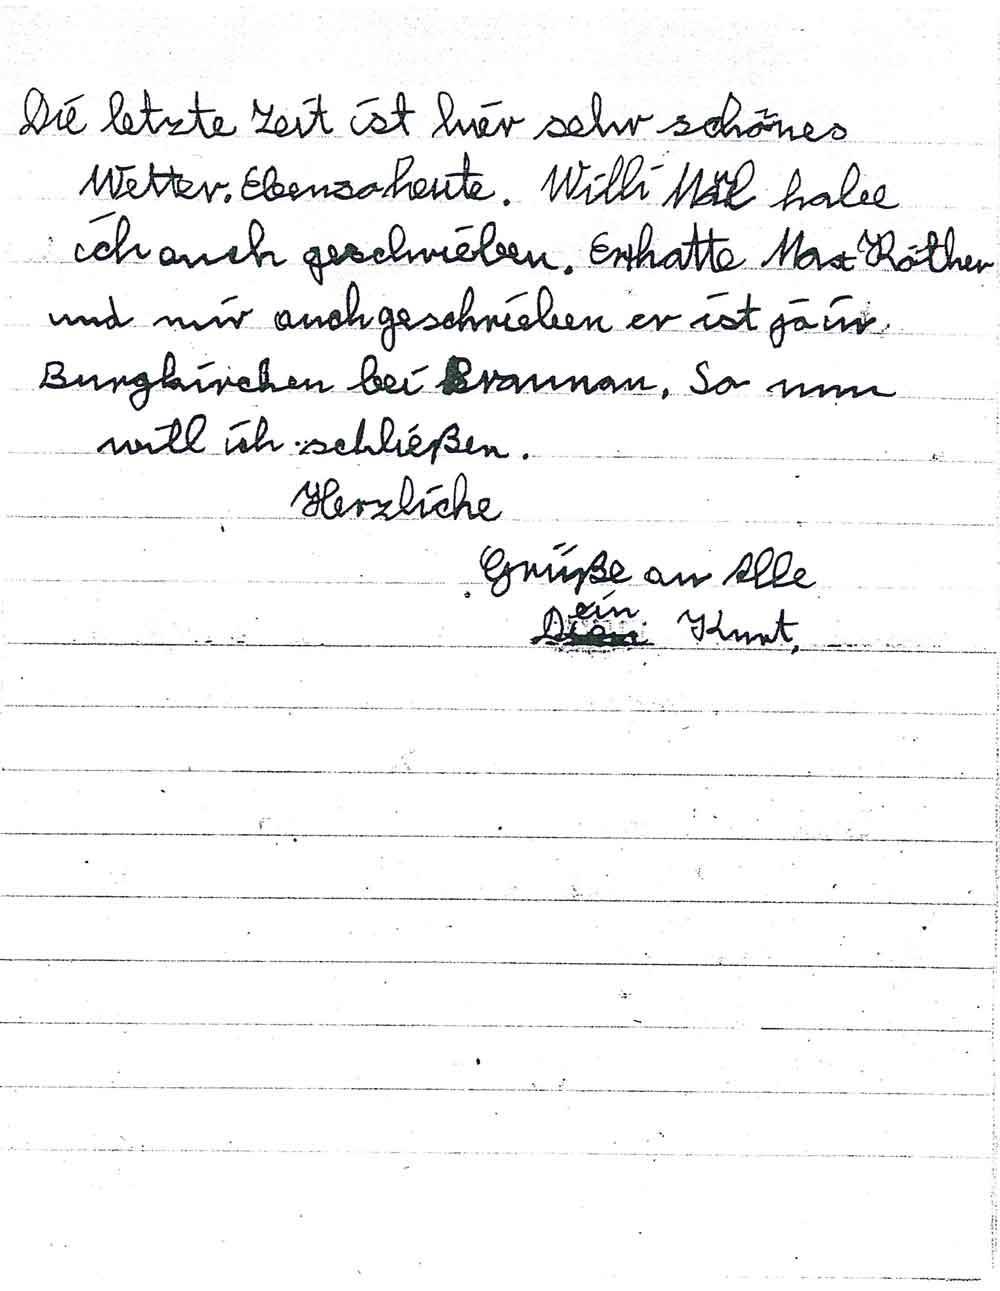 Die letzte Zeit ist hier sehr schönes
Wetter. Ebenso heute. Willi habe
ich auch geschrieben. Er hatte Max Röther
und mir auch geschrieben er ist ja in
Burgkirchen bei Braunau. So nun
will ich schließen.
Herzliche
Grüße an Alle
ein
Kurt,